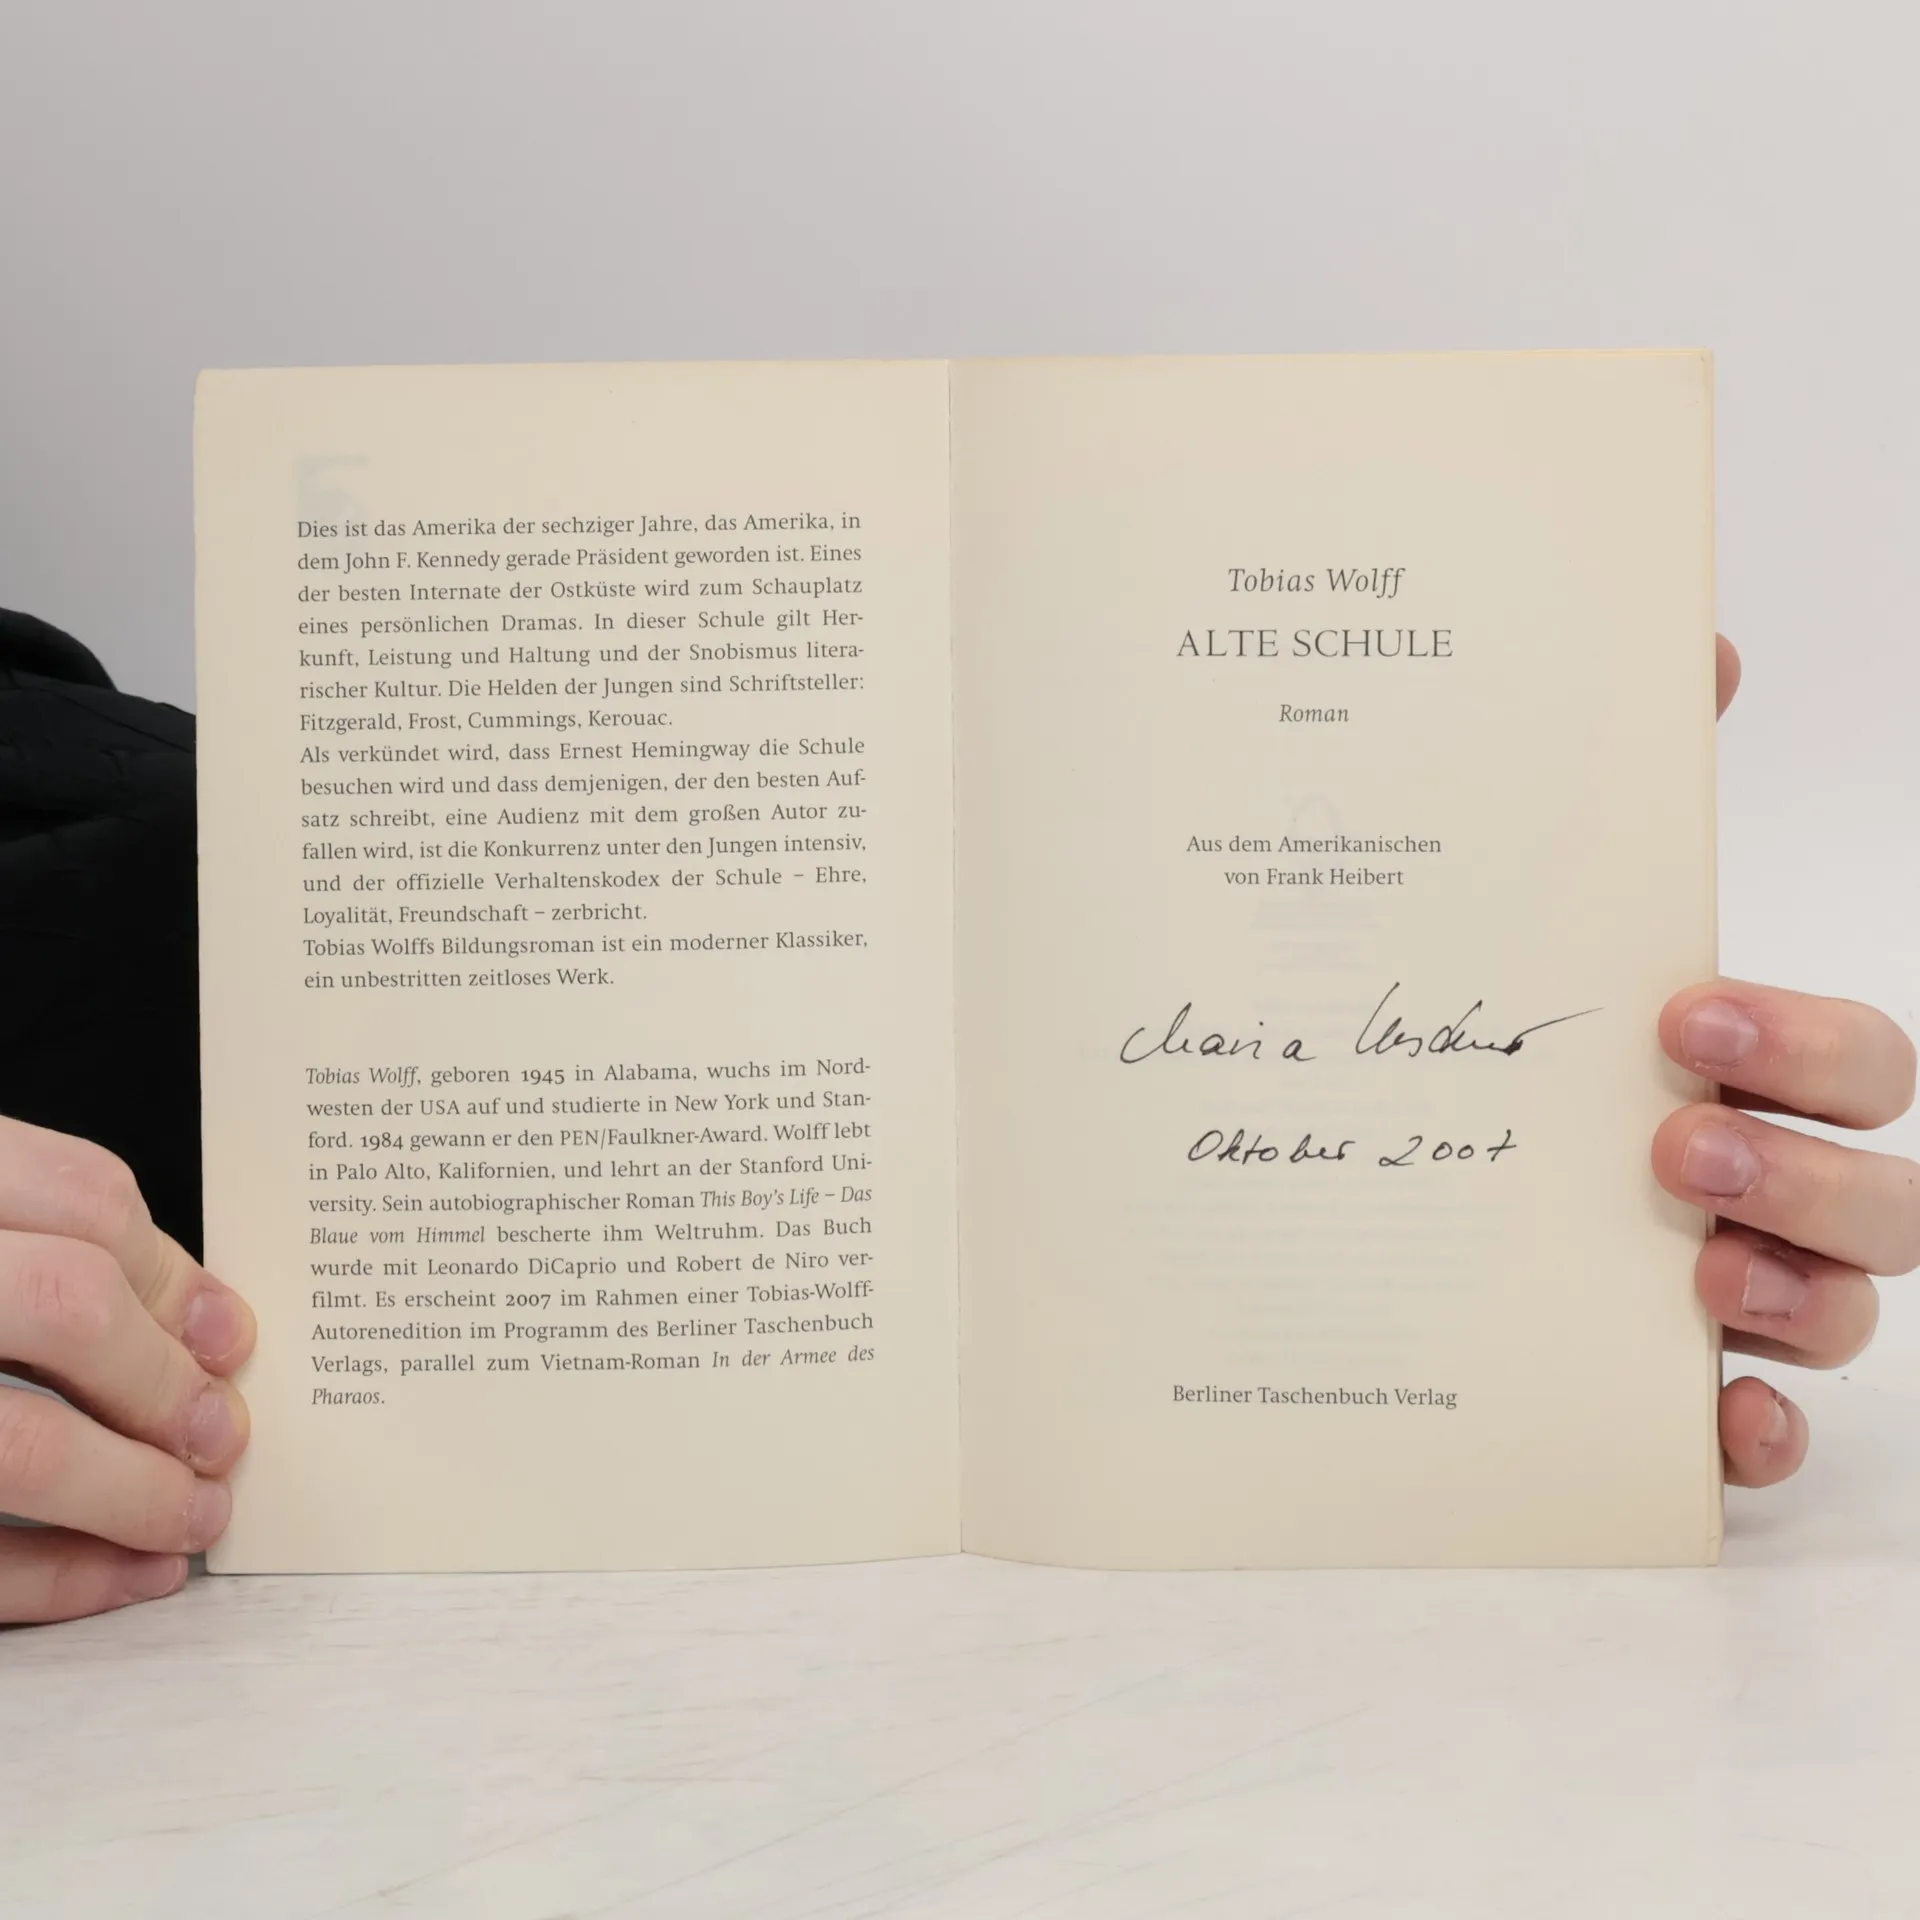 Dies ist das Amerika der sechziger Jahre, das Amerika, in
dem John F. Kennedy gerade Präsident geworden ist. Eines
der besten Internate der Ostküste wird zum Schauplatz
eines persönlichen Dramas. In dieser Schule gilt Her-
kunft, Leistung und Haltung und der Snobismus litera-
rischer Kultur. Die Helden der Jungen sind Schriftsteller:
Fitzgerald, Frost, Cummings, Kerouac.
Als verkündet wird, dass Ernest Hemingway die Schule
besuchen wird und dass demjenigen, der den besten Auf-
satz schreibt, eine Audienz mit dem großen Autor zu-
fallen wird, ist die Konkurrenz unter den Jungen intensiv,
und der offizielle Verhaltenskodex der Schule – Ehre,
Loyalität, Freundschaft – zerbricht.
Tobias Wolffs Bildungsroman ist ein moderner Klassiker,
ein unbestritten zeitloses Werk.
Tobias Wolff, geboren 1945 in Alabama, wuchs im Nord-
westen der USA auf und studierte in New York und Stan-
ford. 1984 gewann er den PEN/Faulkner-Award. Wolff lebt
in Palo Alto, Kalifornien, und lehrt an der Stanford Uni-
versity. Sein autobiographischer Roman This Boy's Life – Das
Blaue vom Himmel bescherte ihm Weltruhm. Das Buch
wurde mit Leonardo DiCaprio und Robert de Niro ver-
filmt. Es erscheint 2007 im Rahmen einer Tobias-Wolff-
Autorenedition im Programm des Berliner Taschenbuch
Verlags, parallel zum Vietnam-Roman In der Armee des
Pharaos.
Tobias Wolff
ALTE SCHULE
Roman
Aus dem Amerikanischen
von Frank Heibert
Maria
Oktober 2007
Berliner Taschenbuch Verlag